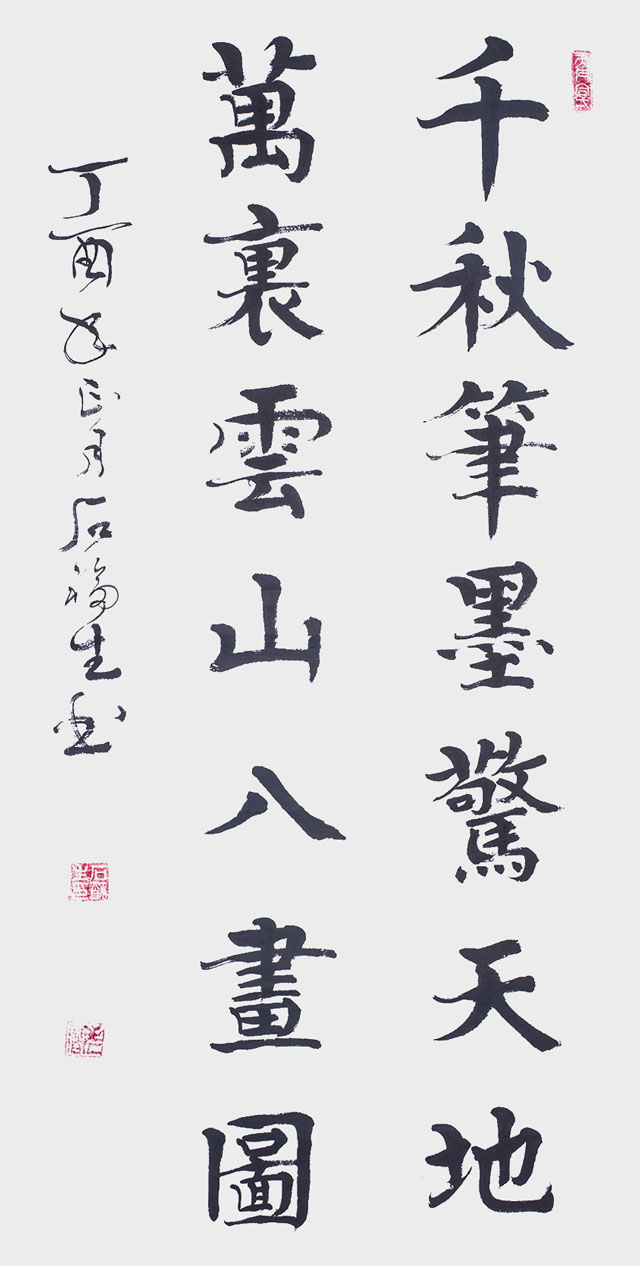 千秋筆墨驚天地
萬裏雲山入畫圖
丁酉年正月石福生书